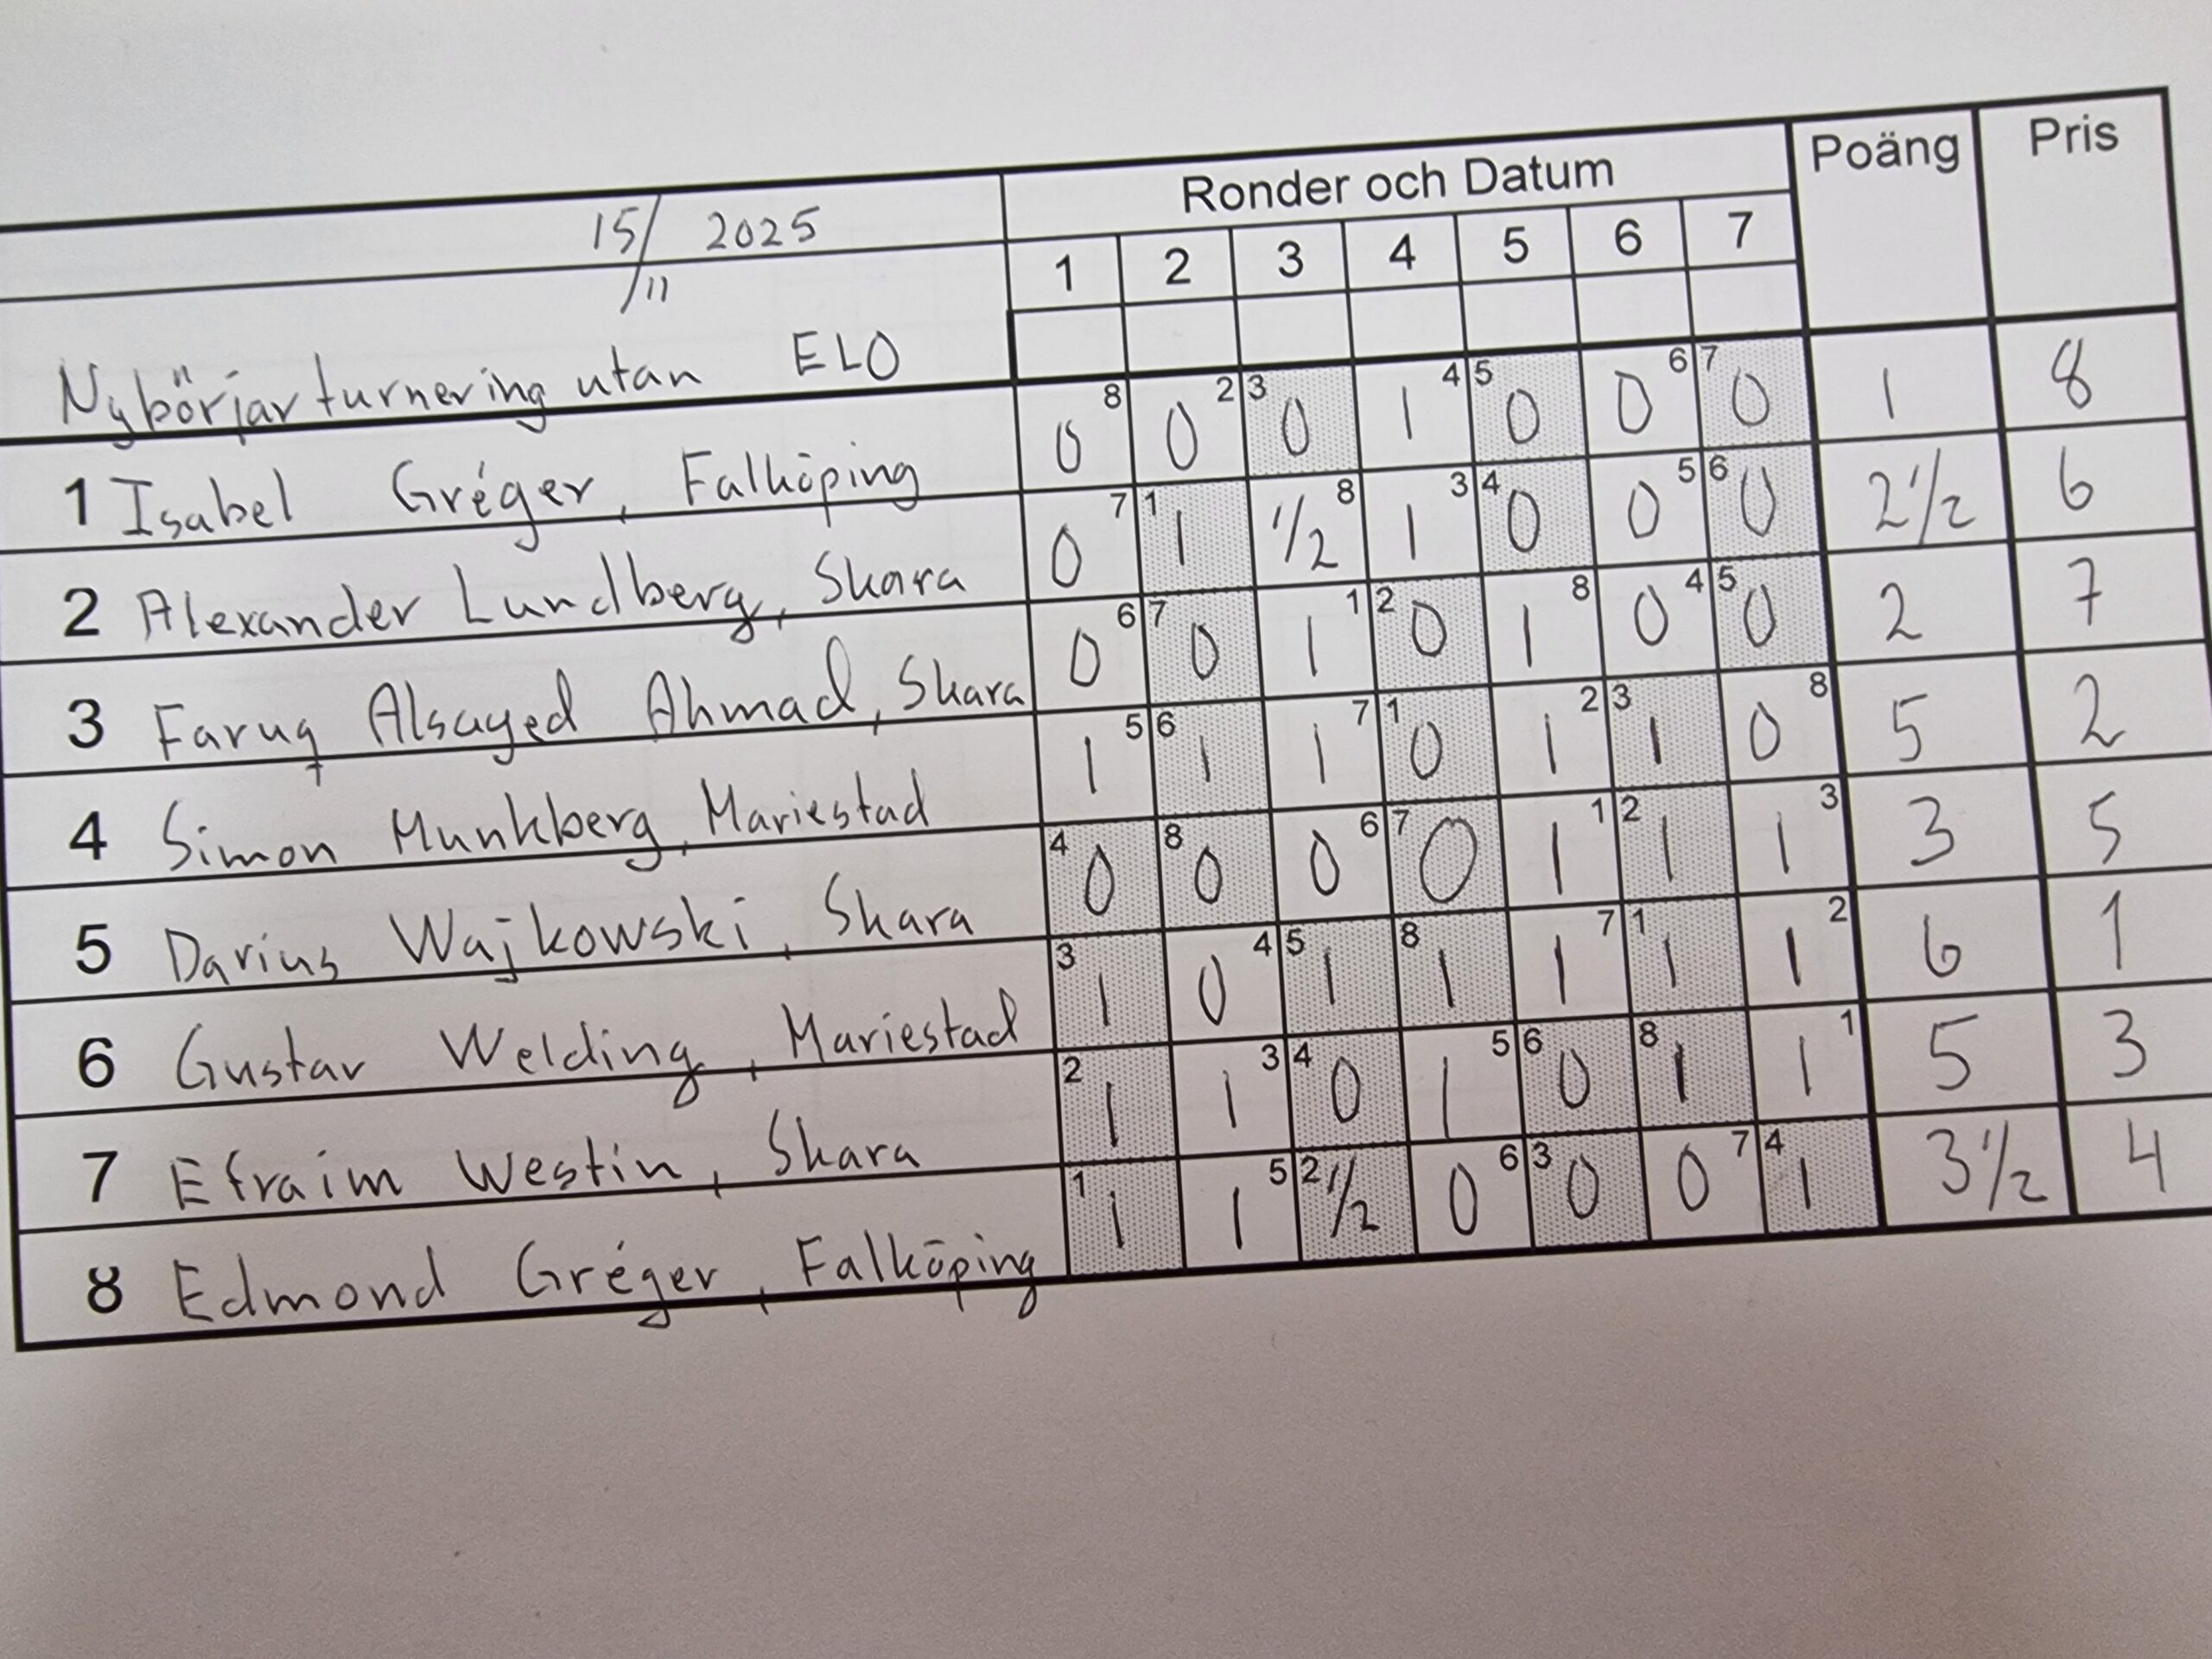 Ronder och Datum Poäng Pris
15/11 2025
1 2 3 4 5 6 7
Nybörjarturnering utan ELO
1 Isabel Gréger, Falköping 8 0 2 0 3 0 4 1 5 0 6 0 7 0 1 8
2 Alexander Lundberg, Skara 7 0 1 1 8 1/2 3 1 4 0 5 0 6 0 2 1/2 6
3 Faruq Alsayed Ahmad, Skara 6 0 7 0 1 1 2 0 8 1 4 0 5 0 2 7
4 Simon Munkberg, Mariestad 5 1 6 1 7 1 1 0 2 1 3 1 8 0 5 2
5 Darius Wajkowski, Skara 4 0 8 0 6 0 7 0 1 1 2 1 3 1 3 5
6 Gustav Welding, Mariestad 3 1 4 0 5 1 8 1 7 1 1 1 2 1 6 1
7 Efraim Westin, Skara 2 1 3 1 4 0 5 1 6 0 8 1 1 1 5 3
8 Edmond Gréger, Falköping 1 1 5 1 2 1/2 6 0 3 0 7 0 4 1 3 1/2 4